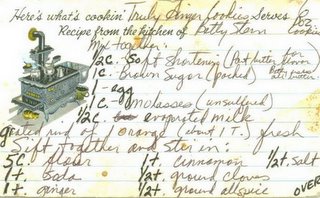 Here's what's cookin' Truly Ginger Cookies Serves 6 doz.
Recipe from the kitchen of Betty Stern Cookies
Mix together:
1/2 c. Soft Shortening (Part butter for flavor
1 c. Brown Sugar (packed)
1 - egg
1 c. Molasses (unsulfured)
1/2 c. evaporated milk
grated rind of 1 orange (about 1 T.) fresh
Sift together and stir in:
5 c. flour 1 t. cinnamon 1/2 t. Salt
1 t. soda 1/2 t. ground cloves
1 t. ginger 1/2 t. ground allspice OVER